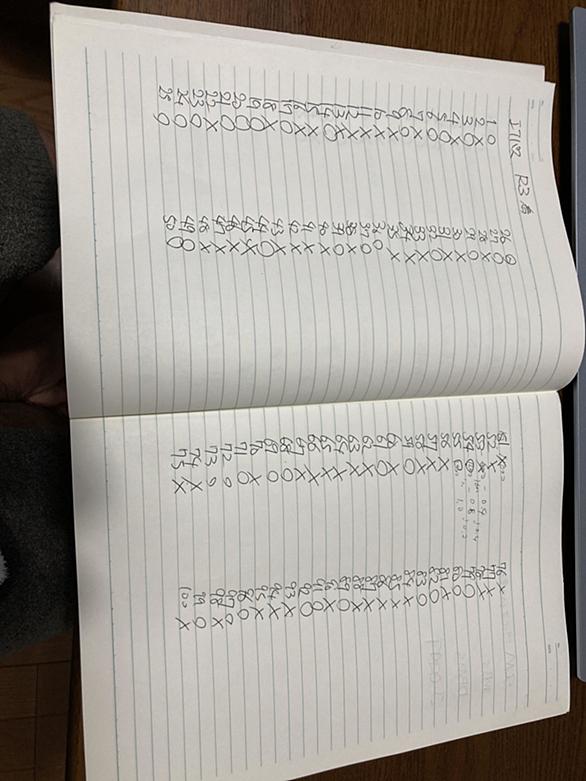 R3 春
1 ○
2 ×
3 ○
4 ×
5 ○
6 ○
7 ×
8 ○
9 ×
10 ×
11 ×
12 ×
13 ×
14 ○
15 ×
16 ×
17 ×
18 ○
19 ×
20 ○
21 ○
22 ○
23 ×
24 ○
25 ○
26 ○
27 ○
28 ×
29 ○
30 ×
31 ×
32 ○
33 ×
34 ×
35 ×
36 ○
37 ○
38 ×
39 ○
40 ×
41 ×
42 ×
43 ×
44 ○
45 ×
46 ×
47 ×
48 ×
49 ○
50 ○
51 ×
52 ×
53 ×
54 ○
55 ○
56 ×
57 ×
58 ×
59 ○
60 ×
61 ○
62 ×
63 ×
64 ×
65 ×
66 ×
67 ×
68 ○
69 ○
70 ○
71 ×
72 ○
73 ○
74 ×
75 ×
76 ×
77 ×
78 ×
79 ○
80 ○
81 ×
82 ○
83 ○
84 ×
85 ×
86 ×
87 ×
88 ×
89 ○
90 ×
91 ○
92 ○
93 ×
94 ×
95 ×
96 ×
97 ○
98 ×
99 ○
100 ×